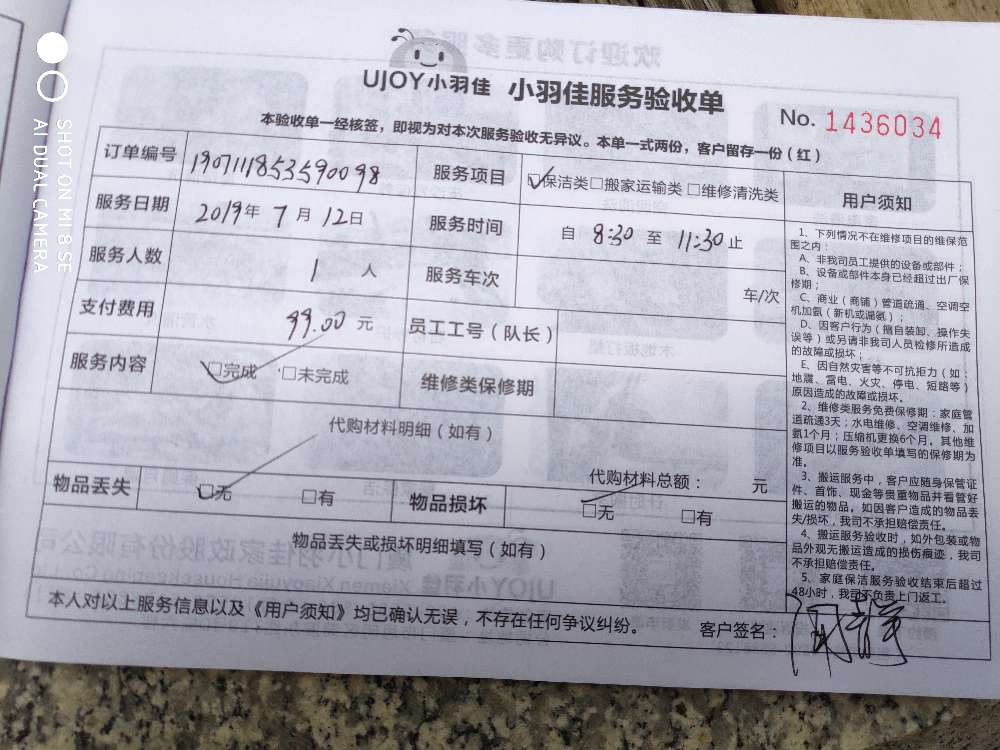 UJOY小羽佳 小羽佳服务验收单
No. 1436034
本验收单一经核签，即视为对本次服务验收无异议。本单一式两份，客户留存一份（红）
订单编号 1907111853590098 服务项目 ☑保洁类□搬家运输类□维修清洗类
服务日期 2019年 7月 12日 服务时间 自 8:30 至 11:30 止
服务人数 1 人 服务车次 车/次
支付费用 99.00 元 员工工号（队长）
服务内容 ☑完成 □未完成 维修类保修期
代购材料明细（如有）
代购材料总额： 元
物品丢失 ☑无 □有 物品损坏 □无 □有
物品丢失或损坏明细填写（如有）
本人对以上服务信息以及《用户须知》均已确认无误，不存在任何争议纠纷。 客户签名：
用户须知
1、下列情况不在维修项目的维保范
围之内：
A、非我司员工提供的设备或部件；
B、设备或部件本身已经超过出厂保
修期；
C、商业（商铺）管道疏通、空调空
机加氨（新机或漏氨）；
D、因客户行为（擅自装卸、操作失
误等）或另请非我司人员检修所造成
的故障或损坏；
E、因自然灾害等不可抗拒力（如：
地震、雷电、火灾、停电、短路等）
原因造成的故障或损坏。
2、维修类服务免费保修期：家庭管
道疏通3天；水电维修、空调维修、加
氨1个月；压缩机更换6个月。其他维
修项目以服务验收单填写的保修期为
准。
3、搬运服务中，客户应随身保管证
件、首饰、现金等贵重物品并看管好
搬运的物品。如因客户造成的物品丢
失/损坏，我司不承担赔偿责任。
4、搬运服务验收时，如外包装或物
品外观无搬运造成的损伤痕迹，我司
不承担赔偿责任。
5、家庭保洁服务验收结束后超过
48小时，我司不负责上门返工。
SHOT ON MI 8 SE
AI DUAL CAMERA